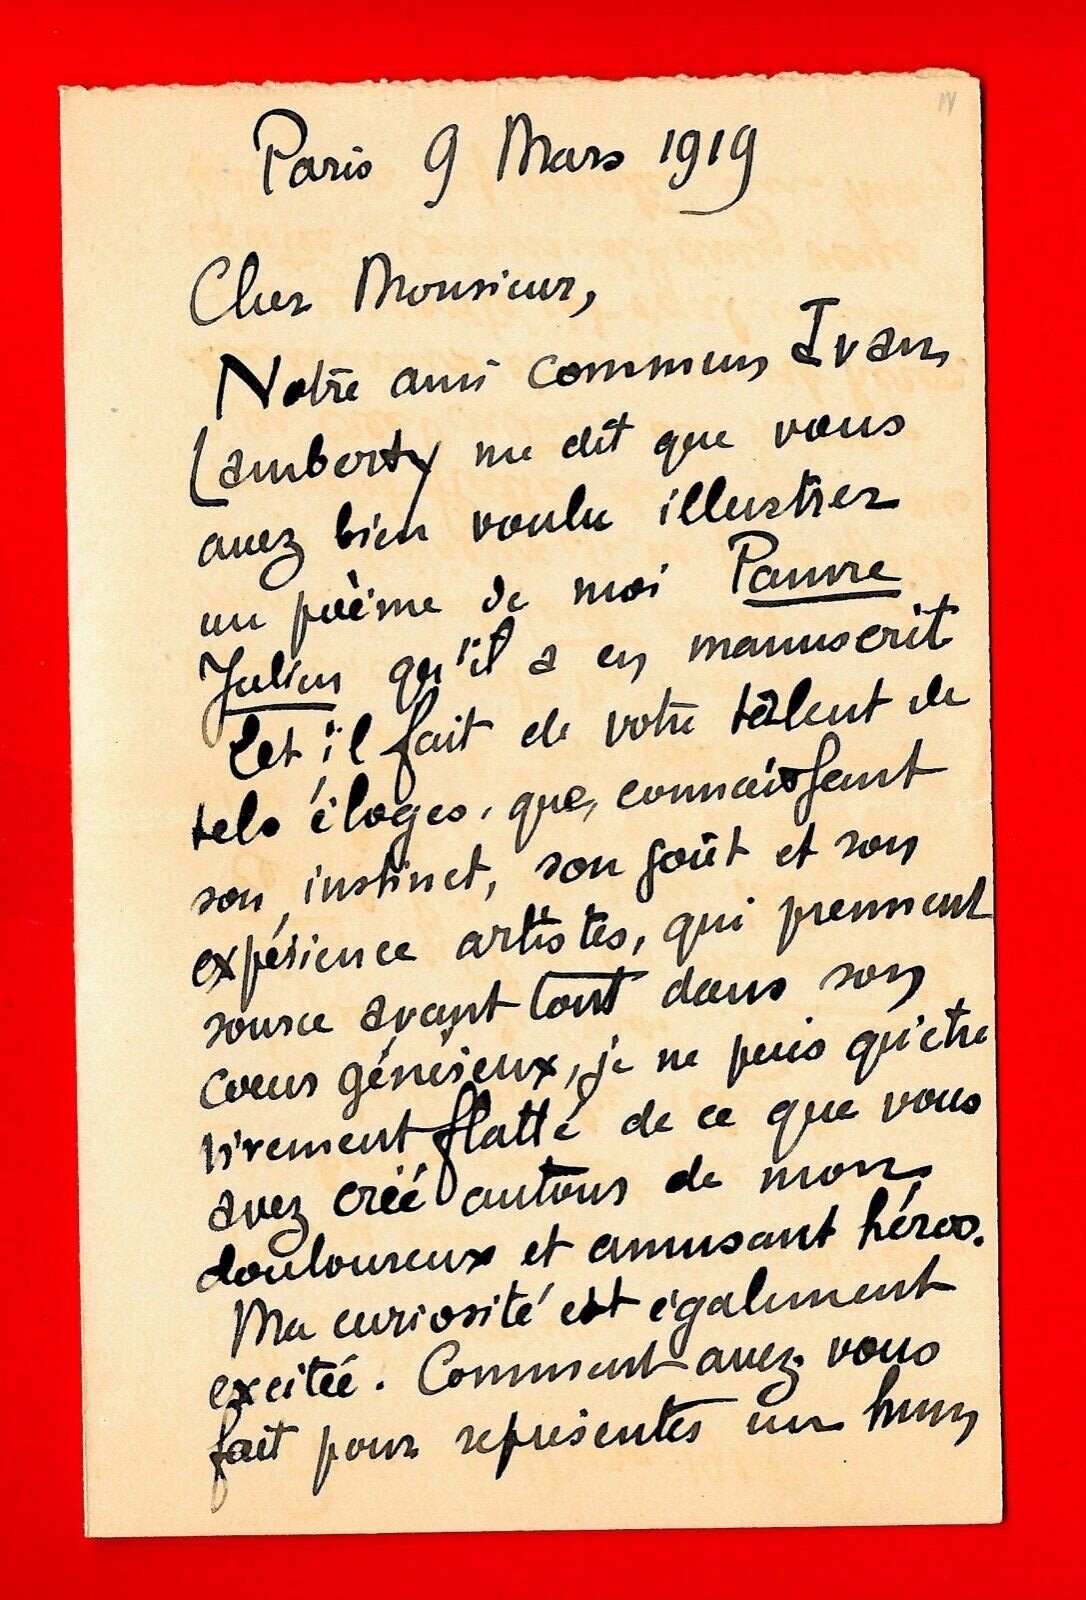 Paris 9 Mars 1919
Cher Monsieur,
Notre ami commun, Ivan
Lamberty me dit que vous
avez bien voulu illustrer
un poème de moi Pauvre
Julien qu'il a en manuscrit
et il fait de votre talent de
tels éloges, que, connaissant
son instinct, son goût et son
expérience artistes, qui prennent
source avant tout dans son
coeur généreux, je ne puis qu'être
vivement flatté de ce que vous
avez créé autour de mon
douloureux et amusant héros.
Ma curiosité est également
excitée. Comment avez-vous
fait pour représenter un